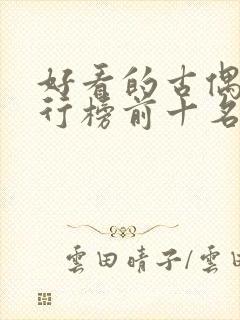 好看的古偶
行榜前十名
雲田晴子/雲田